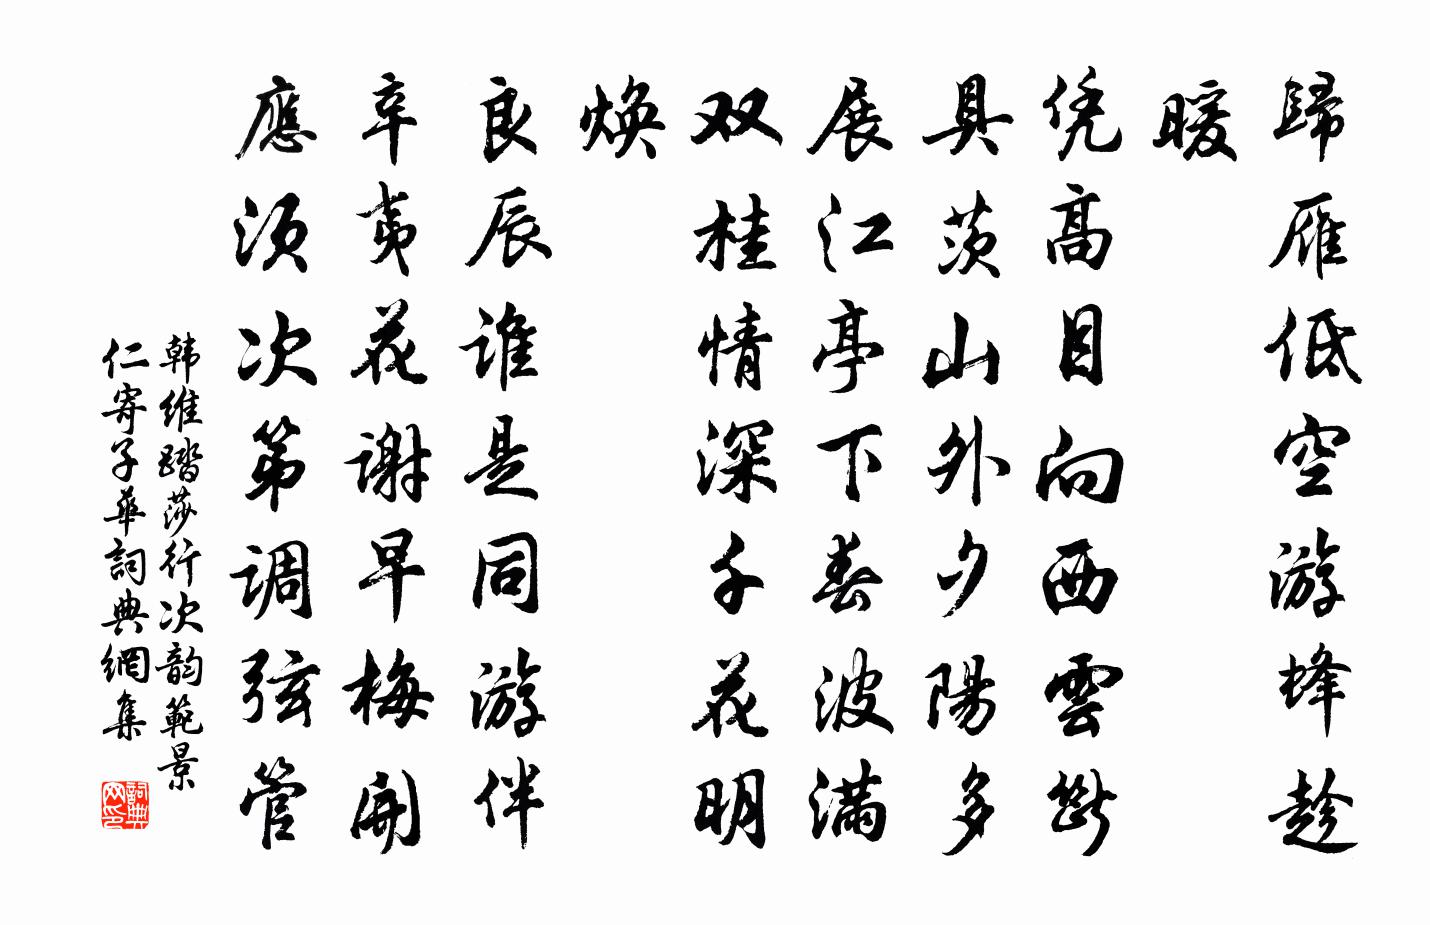 歸雁低空游蜂趁
暖
凭高目向西雲斷
具茨山外夕陽多
展江亭下春波滿
双桂情深千花明
煥
良辰誰是同游伴
辛夷花謝早梅開
應須次第调弦管
韩維踏莎行次韵範景
仁寄子華詞典網集
詞典网印